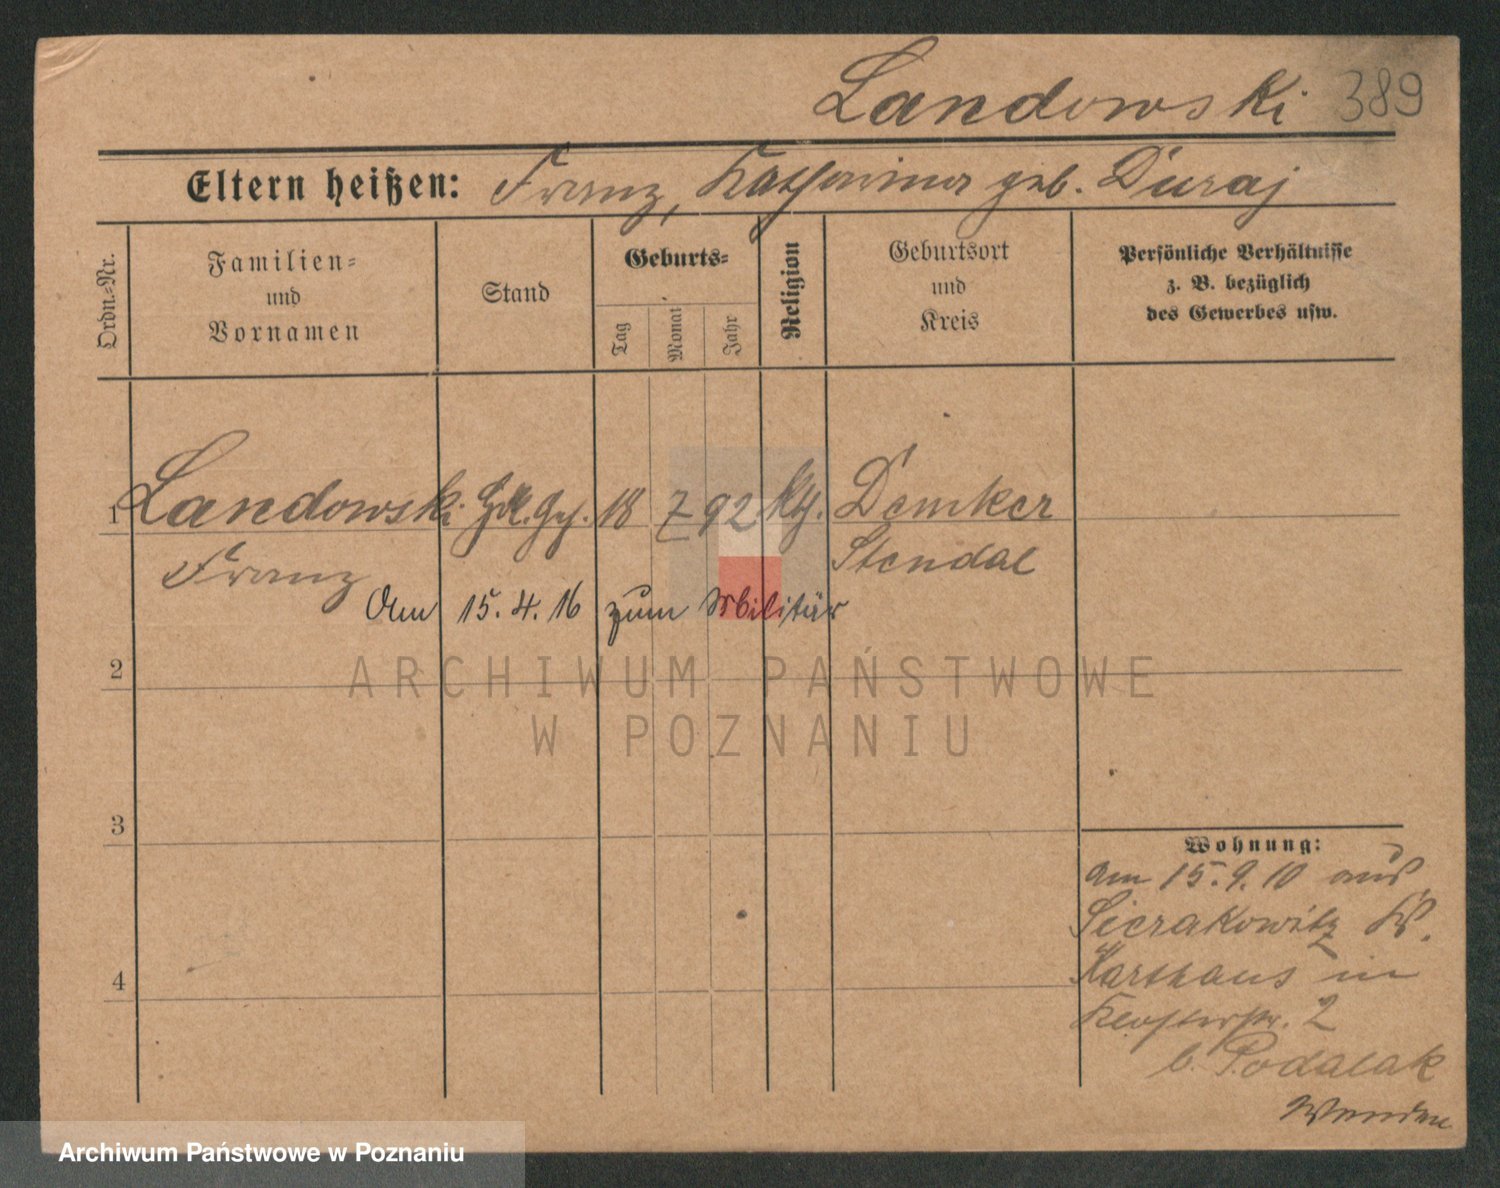 Landowski 389
Eltern heißen: Franz, Katharina geb. Duraj
Ordn.-Nr.
Familien-
und
Vornamen
Stand
Geburts-
Tag
Monat
Jahr
Religion
Geburtsort
und
Kreis
Persönliche Verhältnisse
z. B. bezüglich
des Gewerbes usw.
1 Landowski Hdl. Geh. 18 7 92 kth. Demker
Franz Stendal
Am 15. 4. 16 zum Militär
2
ARCHIWUM PAŃSTWOWE
W POZNANIU
3
Wohnung:
am 15. 9. 10 aus
Sierakowitz Kr.
Karthaus in
Klosterstr. 2
b. Podalak
Wenden
4
Archiwum Państwowe w Poznaniu